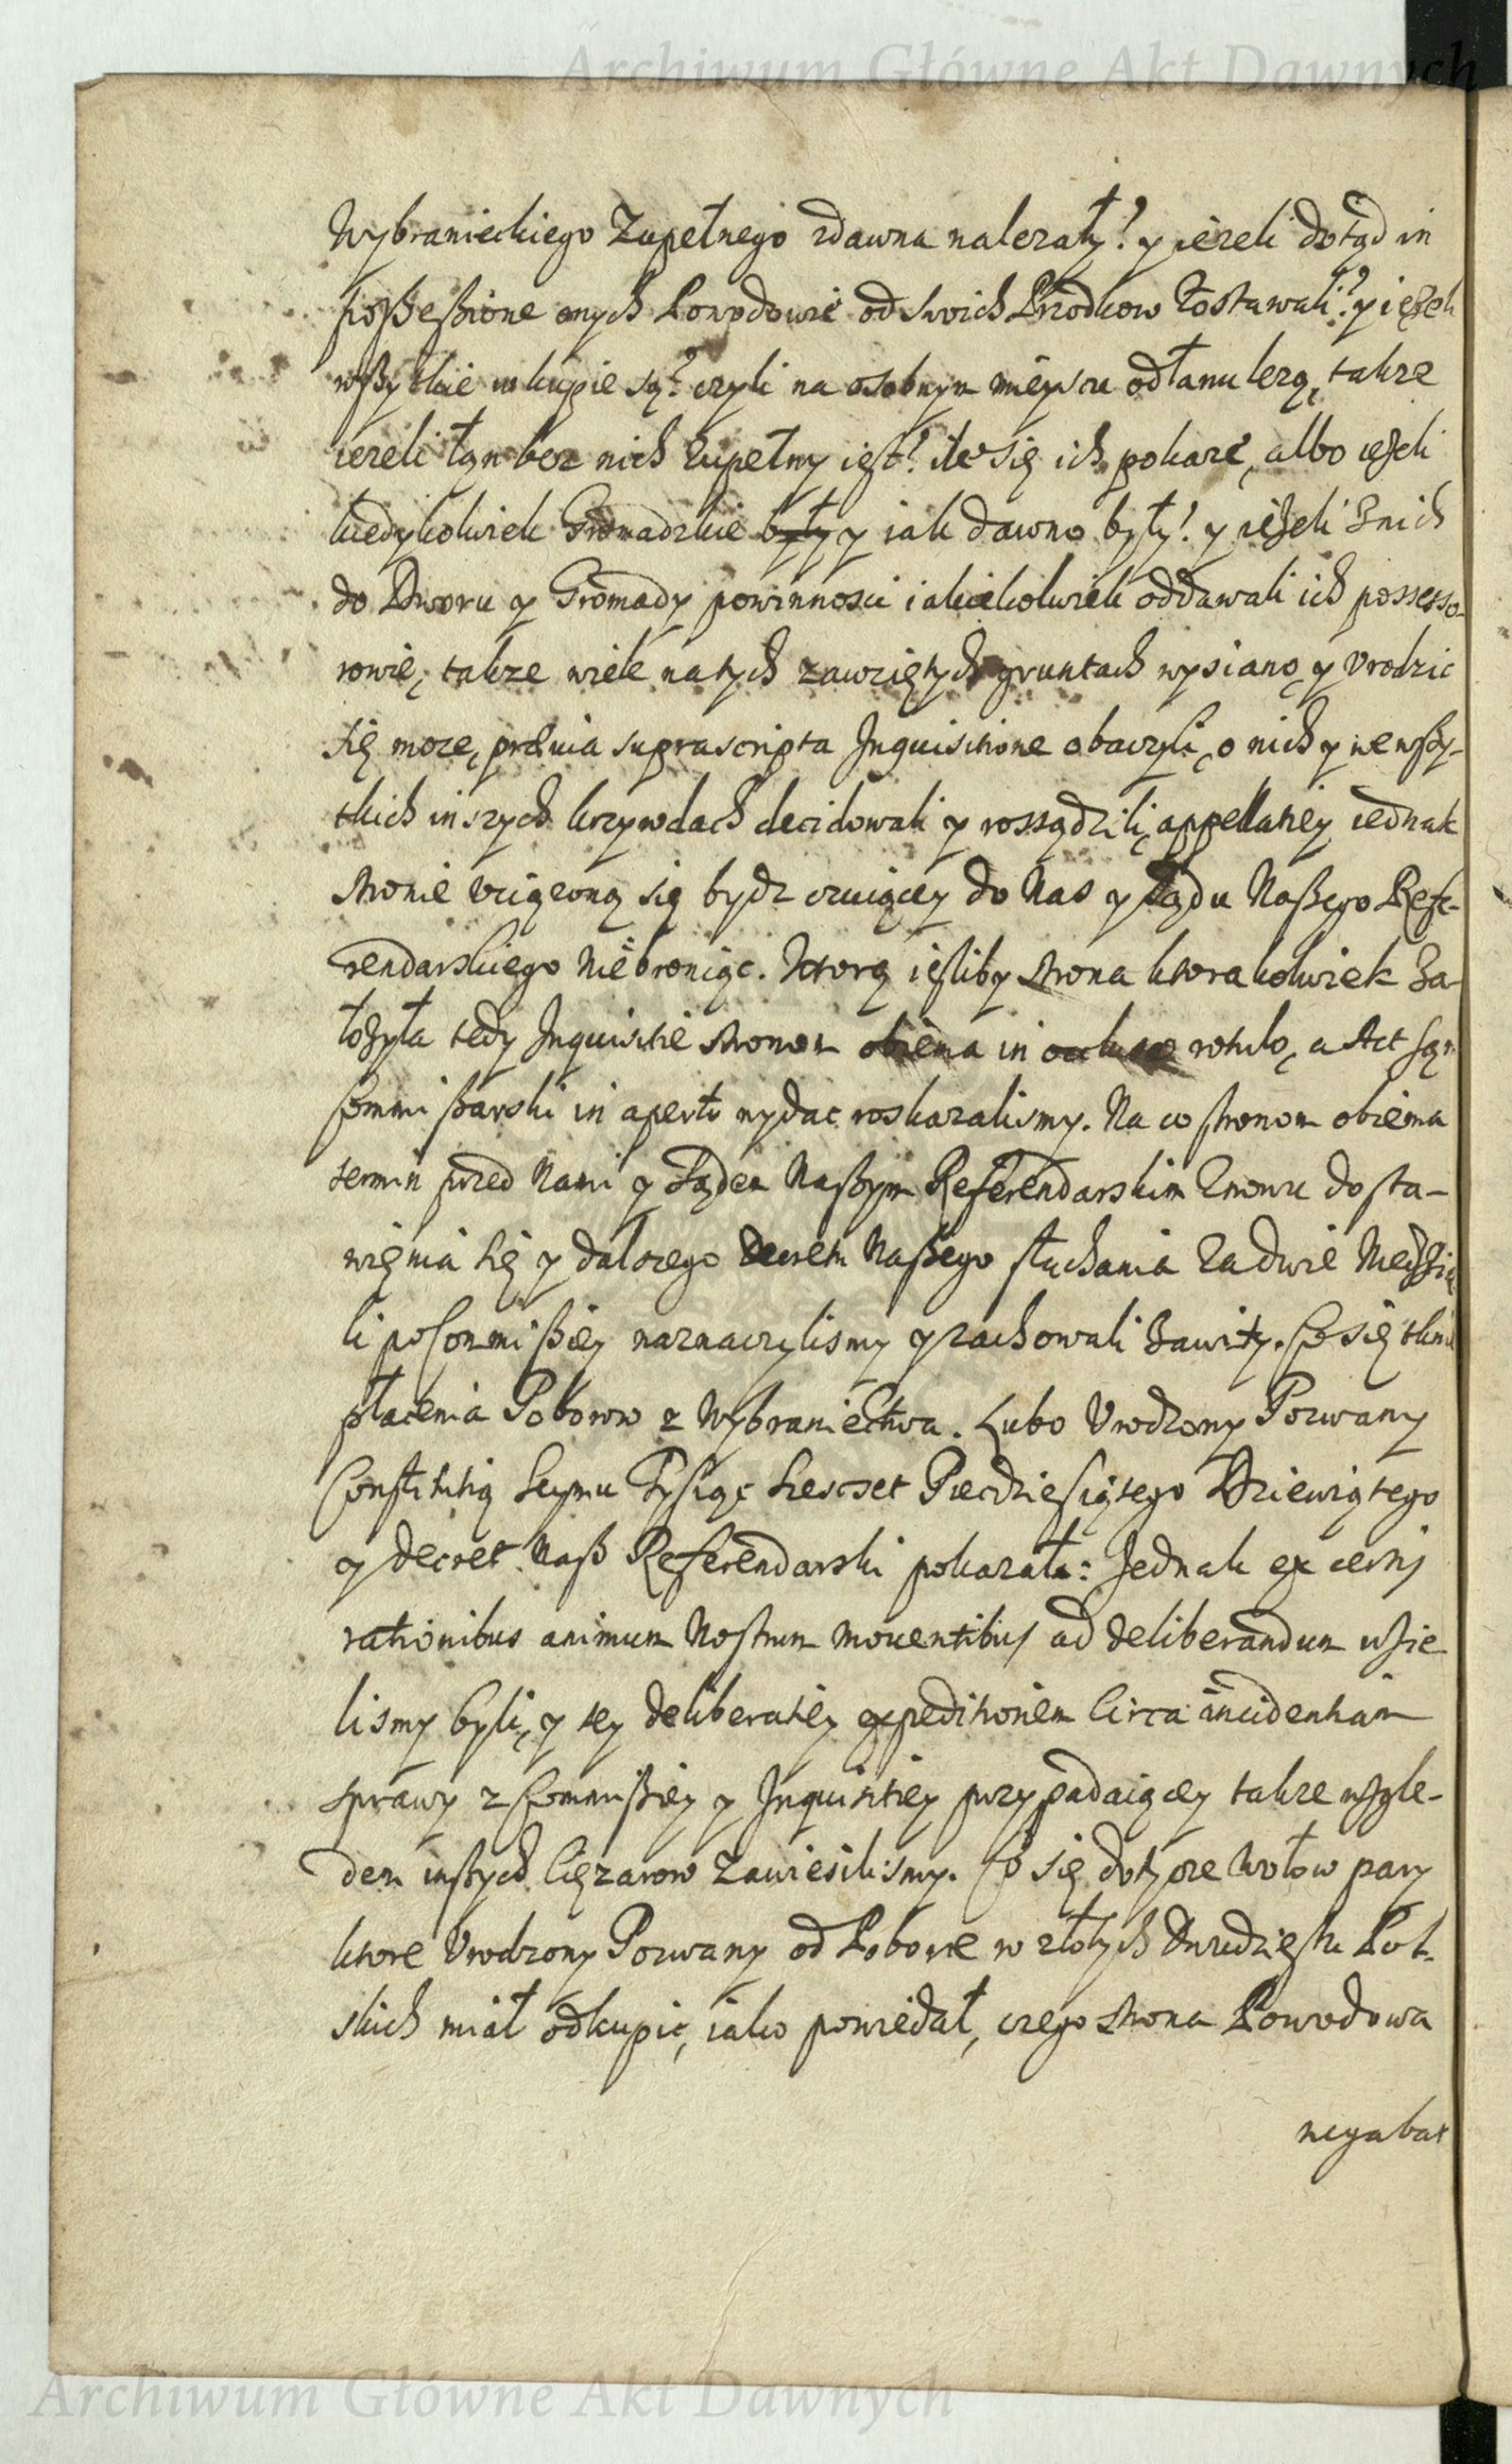 Archiwum Główne Akt Dawnych
Wybranieckiego Zupełnego zdawna nalezały? y iezeli dotąd in
possessione onych Powodowie od swoich Przodkow Zostawali? y iezeli
wszytkie w kupie są? czyli na osobnym mieyscu od łanu lezą, takze
iezeli łan bez nich Zupełny iest? ile się ich pokaze, albo iezeli
kiedykolwiek Gromadzkie były y iak dawno były? y iezeli z nich
do Dworu y Gromady powinnosci iakiekolwiek oddawali ich possesso-
rowie, takze wiele na tych zawziętych gruntach wysiano, y vrodzic
się moze, praevia suprascripta Inquisitione obaczyli, o nich y we wszy-
tkich inszych krzywdach decidowali y rossądzili, appellatiey iednak
stronie vciązoną się bydz czuiącey do Nas y Sądu Naszego Refe-
rendarskiego nie broniąc. Ktorą iesliby strona ktorakolwiek Za-
łozyła tedy Inquisitie stronom obiema in rotulo, a Act
Commissarski in aperto wydac roskazalismy. Na co stronom obiema
termin przed Nami y Sądem Naszym Referendarskim Znowu do sta-
wienia się y dalszego Decretu Naszego słuchania Za dwie Niedzie
li po Commissiey naznaczylismy y zachowali Zawity. Co się tknie
płacenia Poborow z Wybraniectwa. Lubo Vrodzony Pozwany
Constitutią Seymu Tysiąc Szescset Piecdziesiątego Dziewiątego
y Decret Nasz Referendarski pokazał: Jednak ex certis
rationibus animum Nostrum mouentibus ad deliberandum wzie
lismy byli, y tey deliberatiey expeditionem Circa incidentiam
sprawy z Commissiey y Inquisitiey przypadaiącey takze wzgle-
dem inszych Cięzarow Zawiesilismy. Co się dotycze Wołow pary
ktore Vrodzony Pozwany od Poborce w złotych Dwudziestu Pol-
skich miał odkupic, iako powiedał, czego strona Powodowa
negabat
Archiwum Główne Akt Dawnych